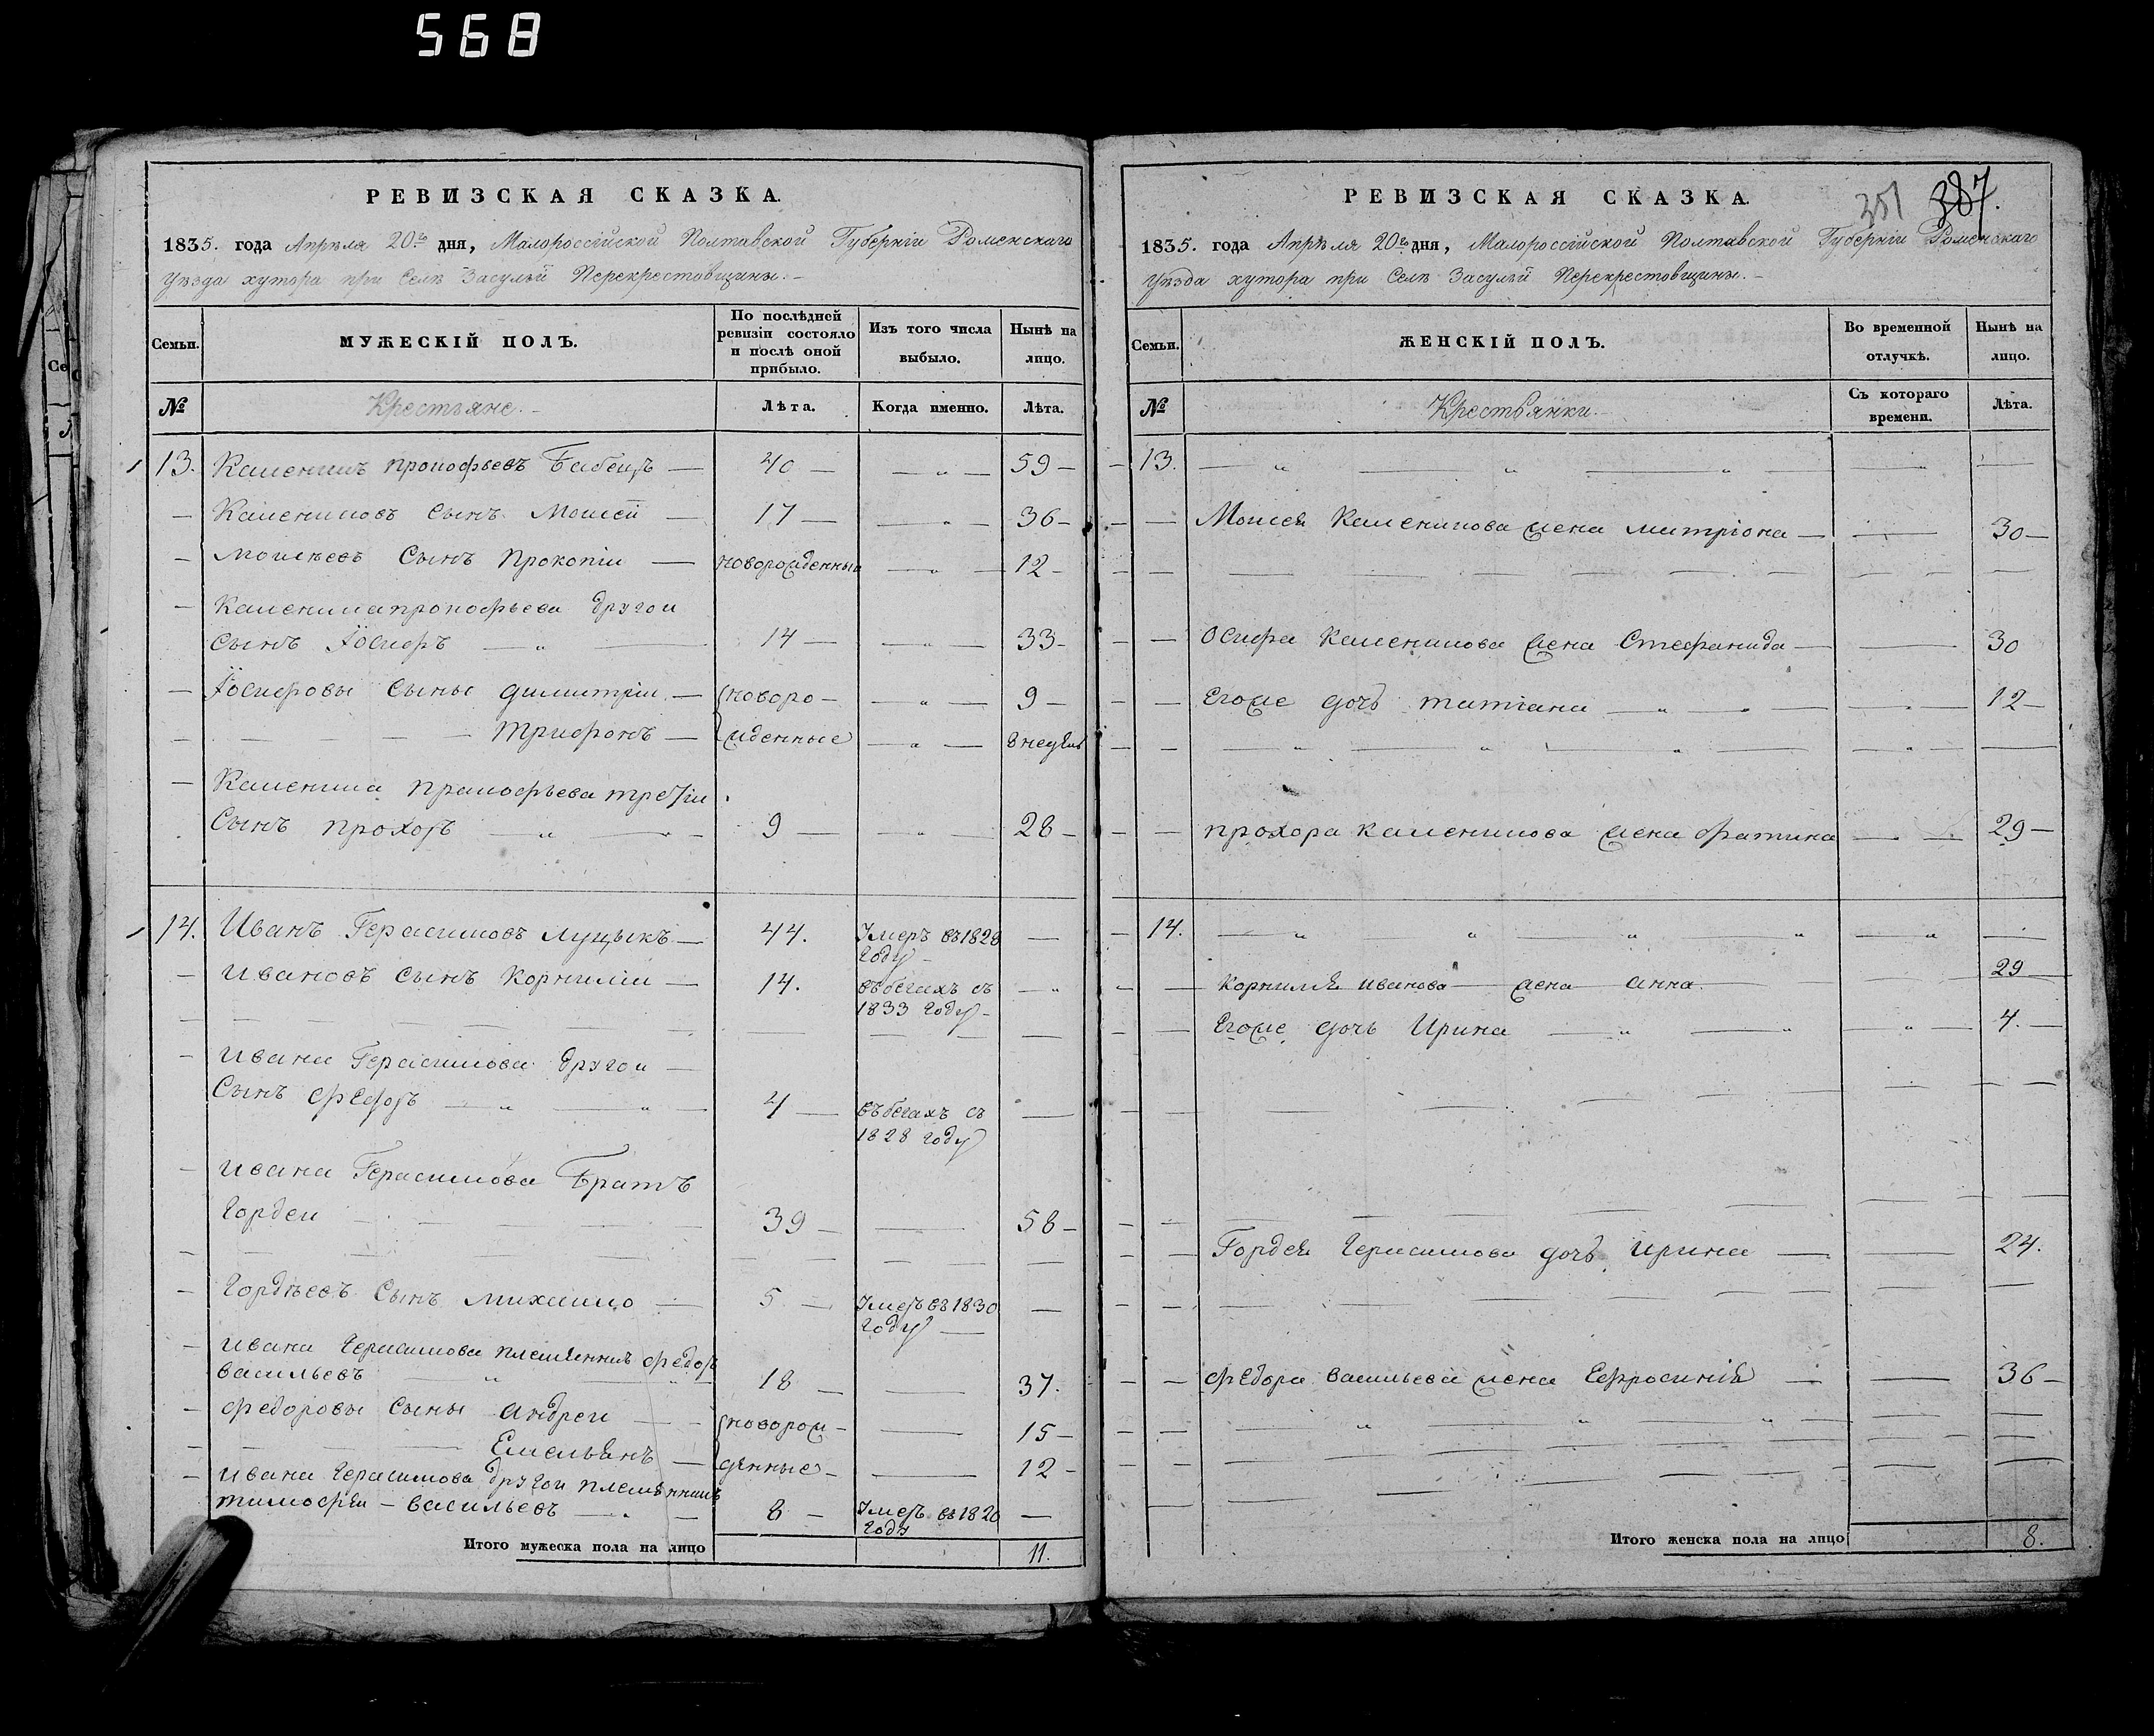 568
РЕВИЗСКАЯ СКАЗКА.
1835. года Апрѣля 20го дня, Малороссійской Полтавской Губерніи Роменскаго
уѣзда хутора при Селѣ Засульи Перекрестовщины.
Семьи.
МУЖЕСКІЙ ПОЛЪ.
По послѣдней ревизіи состояло и послѣ оной прибыло.
Изъ того числа выбыло.
Нынѣ на лицо.
№
Крестьяне.
Лѣта.
Когда именно.
Лѣта.
13. Прокофьевъ Бабецъ — 40 — — „ — 59 —
— сынъ Моисей — 17 — — „ — 36 —
— Моисѣевъ Сынъ Прокопій — новорожденный — „ — 12 —
— прокофьева другои
сынъ Іосифъ — „ — 14 — — „ — 33 —
— Іосифовы Сыны Димитрій — новоро- — „ — 9 —
— Трифонъ — жденные — „ — 8 недѣль
— Прокофьева третіи
Сынъ прохоръ — „ — 9 — — „ — 28 —
14. Иванъ Герасимовъ Луцыкъ — 44. Умеръ въ 1828 —
году
— Ивановъ Сынъ Корнилій — 14. въ бегахъ съ — „
1833 году —
— Ивана Герасимова другои —
Сынъ Федоръ — „ — „ — 4 — въ бегахъ съ —
1828 году
— Ивана Герасимова Братъ
Гордеи 39 — — 58 —
— Гордѣевъ Сынъ Михаило — 5 — Умеръ въ 1830 —
году —
— Ивана Герасимова племянникъ Федоръ
васильевъ — „ — 18 — — 37.
— Федоровы Сыны Андреи — новорож- — 15 —
— Емельянъ — денные — — 12 —
— Ивана Герасимова другои племянникъ
тимофѣи — васильевъ — „ — 8 — Умеръ въ 1820 —
году
Итого мужеска пола на лицо 11.
РЕВИЗСКАЯ СКАЗКА.
351 387.
1835. года Апрѣля 20го дня, Малороссійской Полтавской Губерніи Роменскаго
уѣзда хутора при Селѣ Засульи Перекрестовщины.
Семьи.
ЖЕНСКІЙ ПОЛЪ.
Во временной отлучкѣ.
Нынѣ на лицо.
№
Крестьянки.
Съ котораго времени.
Лѣта.
— 13. — „ — „ — „ — „ —
— — Моисея жена — — 30 —
— — Осифа жена Стефанида — — 30
— — Егоже дочь татіана — „ — „ — 12 —
— — прохора жена — — 29 —
— 14. — „ — „ — „ — „ — „ —
— — Корнилія Иванова жена Анна. — 29
— — Егоже дочь Ирина — „ — „ — „ — 4. —
— — Гордея Герасимова дочь Ирина — — 24.
— — Федора Васильева жена Ефросинія — — 36 —
Итого женска пола на лицо 8.